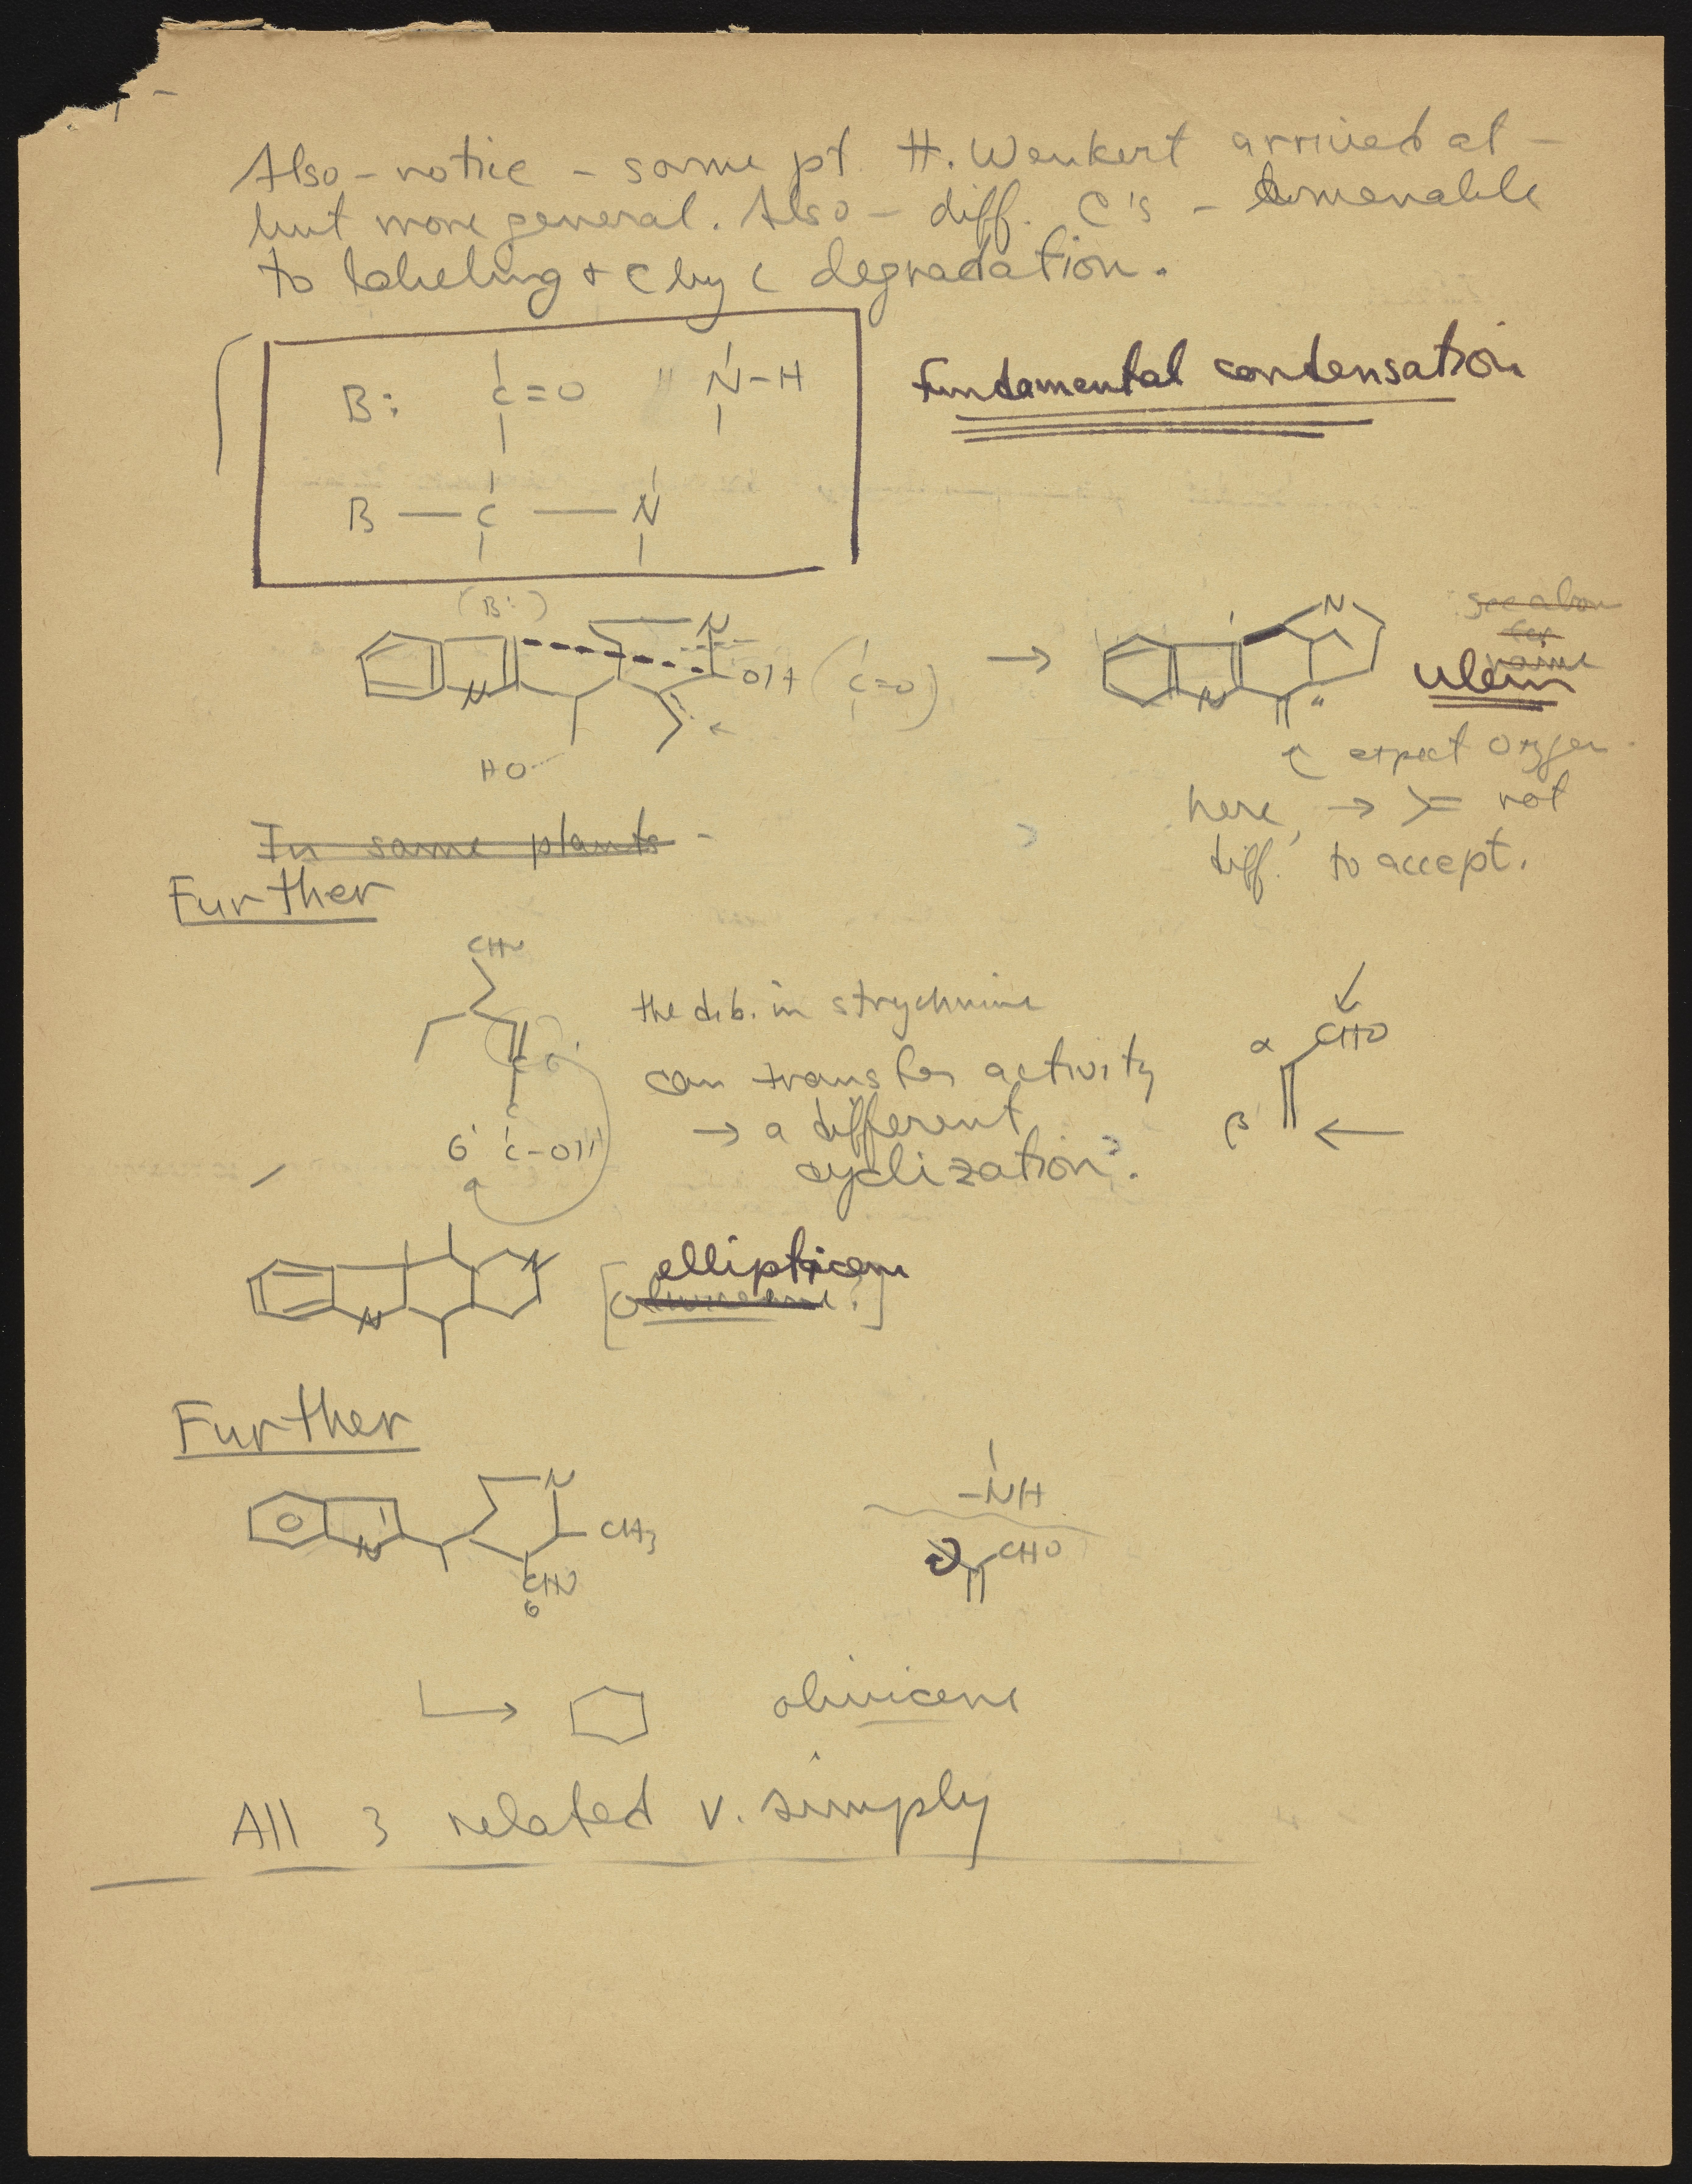 Also - notice - same pt H. Wenkert arrived at -
but more general. Also - diff. C's - amenable
to labeling + C by C degradation.
Fundamental condensation
B: C=O N-H
B — C — N
(B:)
N
N OH (C=O) →
N
N
HO
expect oxygen
here, → >= not
diff. to accept.
In same plants -
Further
the d.b. in strychnine
can transfer activity
→ a different
cyclization?
α CHO
β
C-OH
N
N
Further
N
N CH3
-NH
CHO
olivicene
All 3 related v. simply